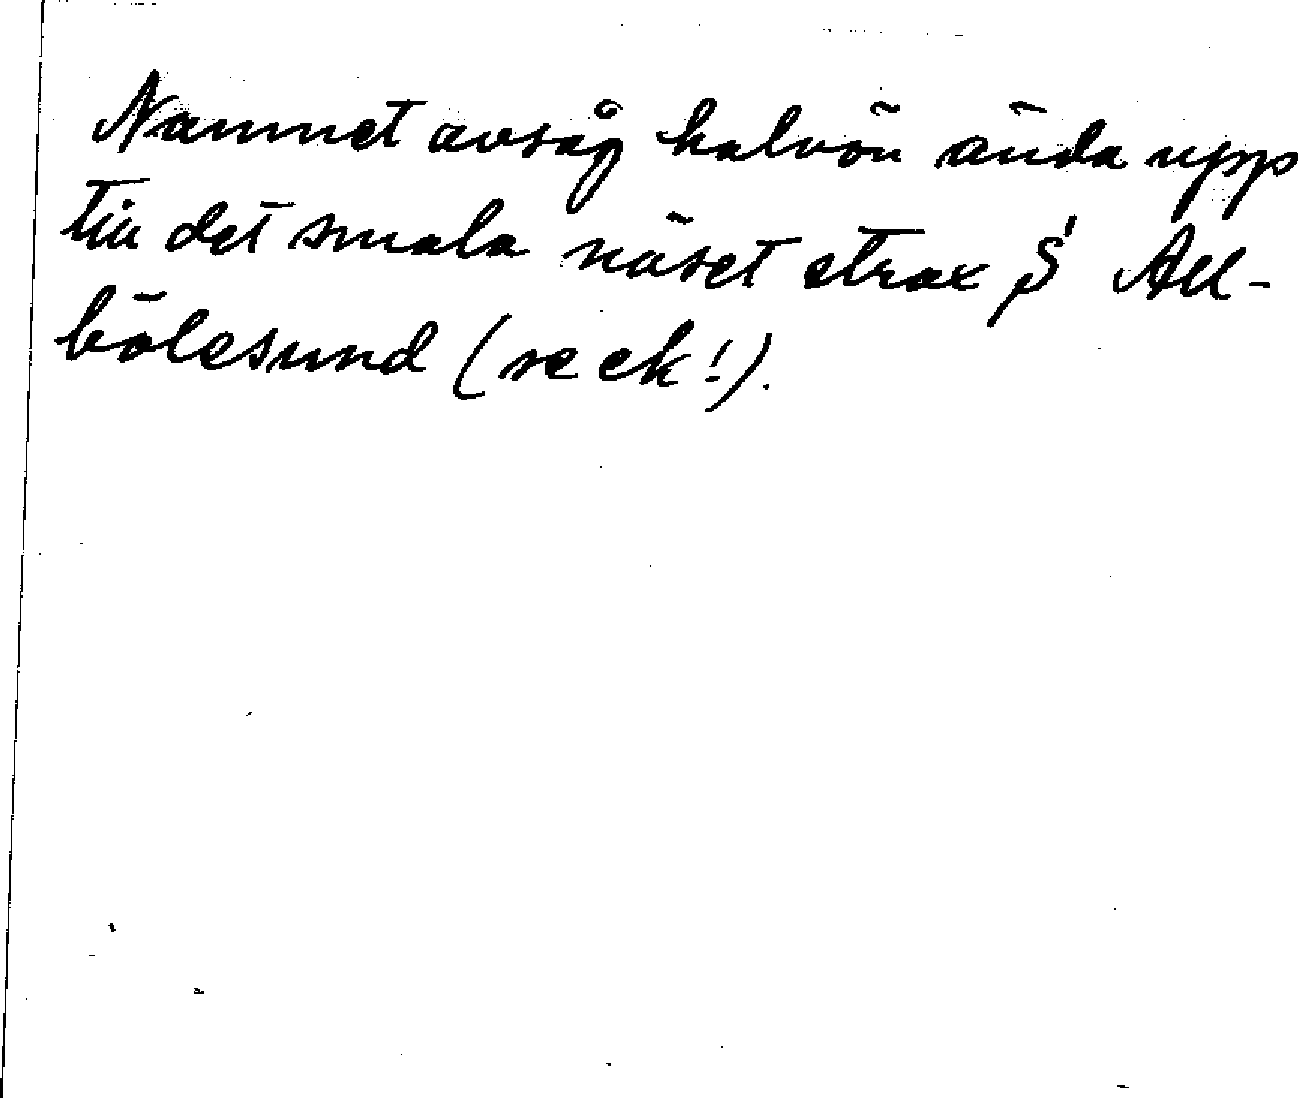 Namnet avsåg halvön ända upp
till det smala näset strax S' All-
bölesund (se ek!).